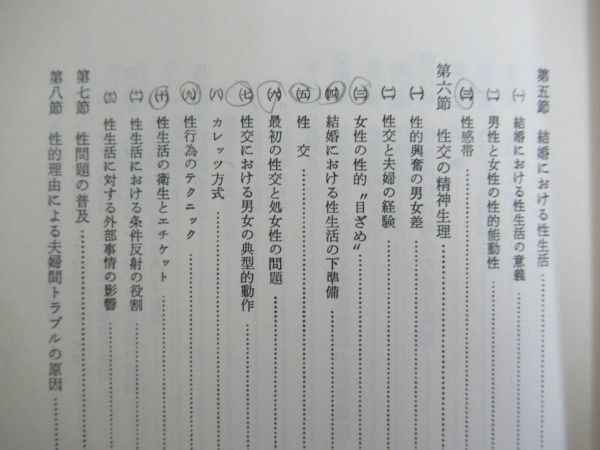 第五節　結婚における性生活……………
㈠　結婚における性生活の意義……………
㈡　男性と女性の性的能動性……………
㈢　性感帯……………
第六節　性交の精神生理……………
㈠　性的興奮の男女差……………
㈡　性交と夫婦の経験……………
㈢　女性の性的〝目ざめ〟……………
㈣　結婚における性生活の下準備……………
㈤　性　交……………
㈥　最初の性交と処女性の問題……………
㈦　性交における男女の典型的動作……………
㈧　カレッツ方式……………
㈨　性行為のテクニック……………
㈩　性生活の衛生とエチケット……………
(十一)　性生活における条件反射の役割……………
(十二)　性生活に対する外部事情の影響……………
第七節　性問題の普及……………
第八節　性的理由による夫婦間トラブルの原因……………